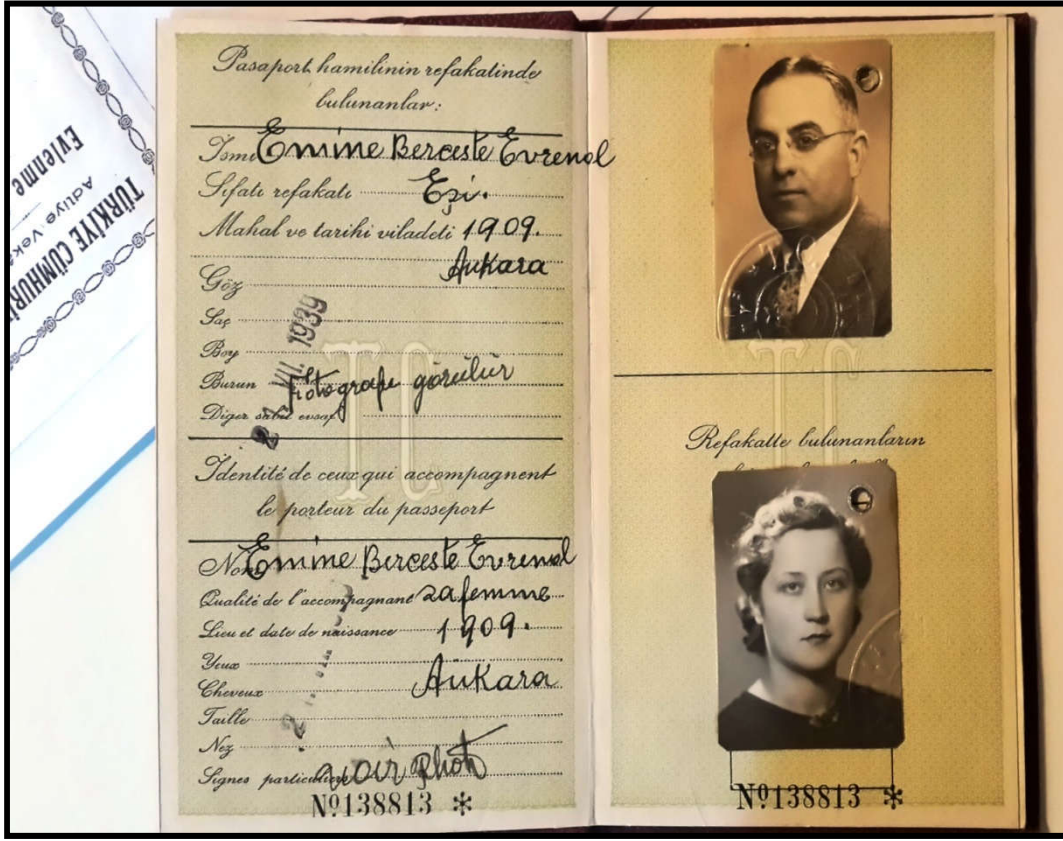 Evlenme
Adliye
TÜRKİYE CÜMHURİ
Pasaport hamilinin refakatinde
bulunanlar:
İsmi Emine Berceste Evrenol
Sıfatı refakatı Eşi.
Mahal ve tarihi viladeti 1909.
Ankara
Göz
Saç
Boy
Burun Fotografı görülür
Diger sabit evsaf
VII. 1939
TC
Identité de ceux qui accompagnent
le porteur du passeport
Nom Emine Berceste Evrenol
Qualité de l'accompagnant sa femme
Lieu et date de naissance 1909.
Yeux
Cheveux Ankara
Taille
Nez
Signes particuliers voir Photo
Nº138813 *
TC
Refakatte bulunanların
Nº138813 *